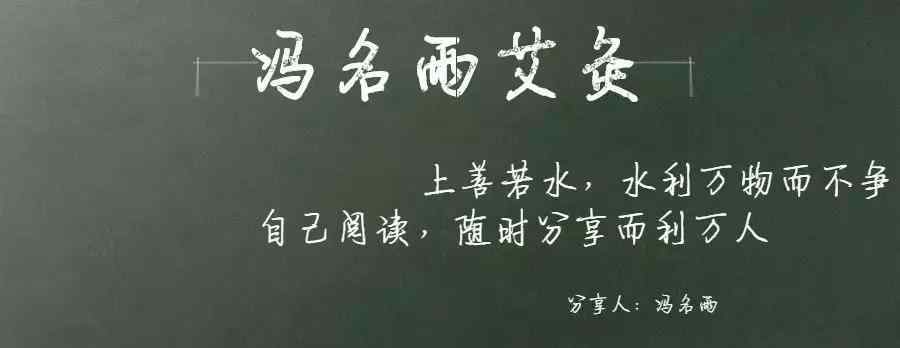 冯名雨艾灸
上善若水，水利万物而不争
自己阅读，随时分享而利万人
分享人：冯名雨